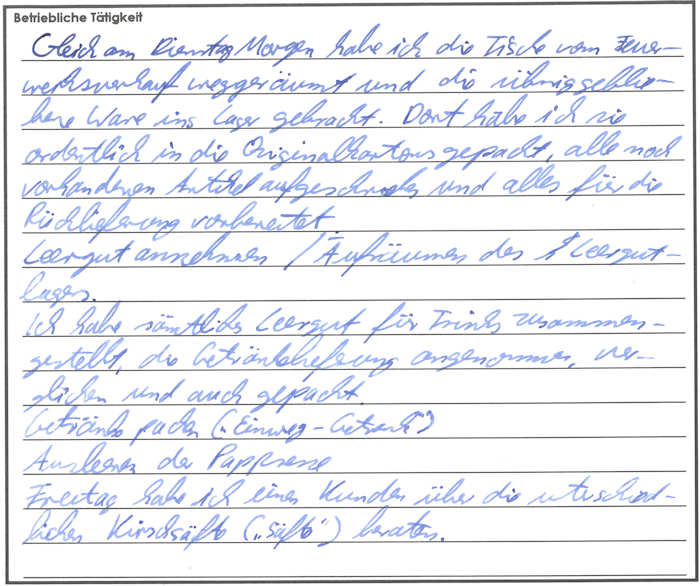 Betriebliche Tätigkeit
Gleich am Dienstag Morgen habe ich die Tische vom Feuer-
werksverkauf weggeräumt und die übriggeblie-
bene Ware ins Lager gebracht. Dort habe ich sie
ordentlich in die Originalkartons gepackt, alle noch
vorhandenen Artikel aufgeschrieben und alles für die
Rücklieferung vorbereitet
Leergut annehmen / Aufräumen des Leergut-
lagers.
Ich habe sämtliches Leergut für Trinks zusammen-
gestellt, die Getränkelieferung angenommen, ver-
glichen und auch gepackt.
Getränke packen („Einweg-Getränk")
Ausleeren der Pappresse
Freitag habe ich einen Kunden über die unterschied-
lichen Kirschsäfte („Säfte") beraten.